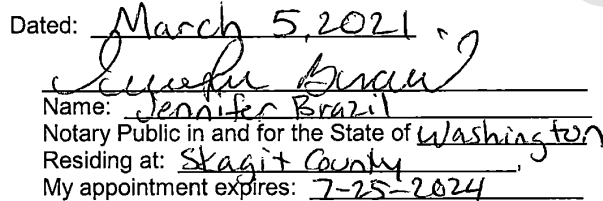 Dated: March 5, 2021
Name: Jennifer Brazil
Notary Public in and for the State of Washington
Residing at: Skagit County,
My appointment expires: 7-25-2024